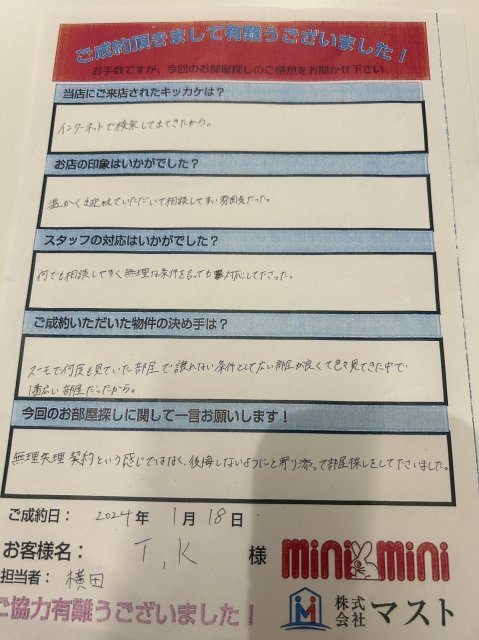 ご成約頂きまして有難うございました！
お手数ですが、今回のお部屋探しのご感想をお聞かせ下さい。
当店にご来店されたキッカケは？
インターネットで検索して出てきたから。
お店の印象はいかがでした？
温かく出迎えていただいて相談しやすい雰囲気だった。
スタッフの対応はいかがでした？
何でも相談しやすく無理な条件を言っても対応して下さった。
ご成約いただいた物件の決め手は？
スーモで何度も見ていた部屋で譲れない条件として広い部屋が良くて色々見てきた中で
1番広い部屋だったから。
今回のお部屋探しに関して一言お願いします！
無理矢理契約という感じではなく、後悔しないようにと寄り添って部屋探しをして下さいました。
ご成約日： 2024年 1月 18日
お客様名： T,K 様
minimini
担当者： 横田
株式会社 マスト
ご協力有難うございました！